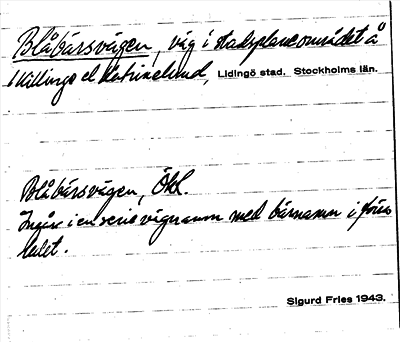 Blåbärsvägen, väg i stadsplaneområdet å
Killinge el. Katrinelund, Lidingö stad. Stockholms län.
Blåbärsvägen, Ökl.
Ingår i en serie vägnamn med bärnamn i förra
ledet.
Sigurd Fries 1943.